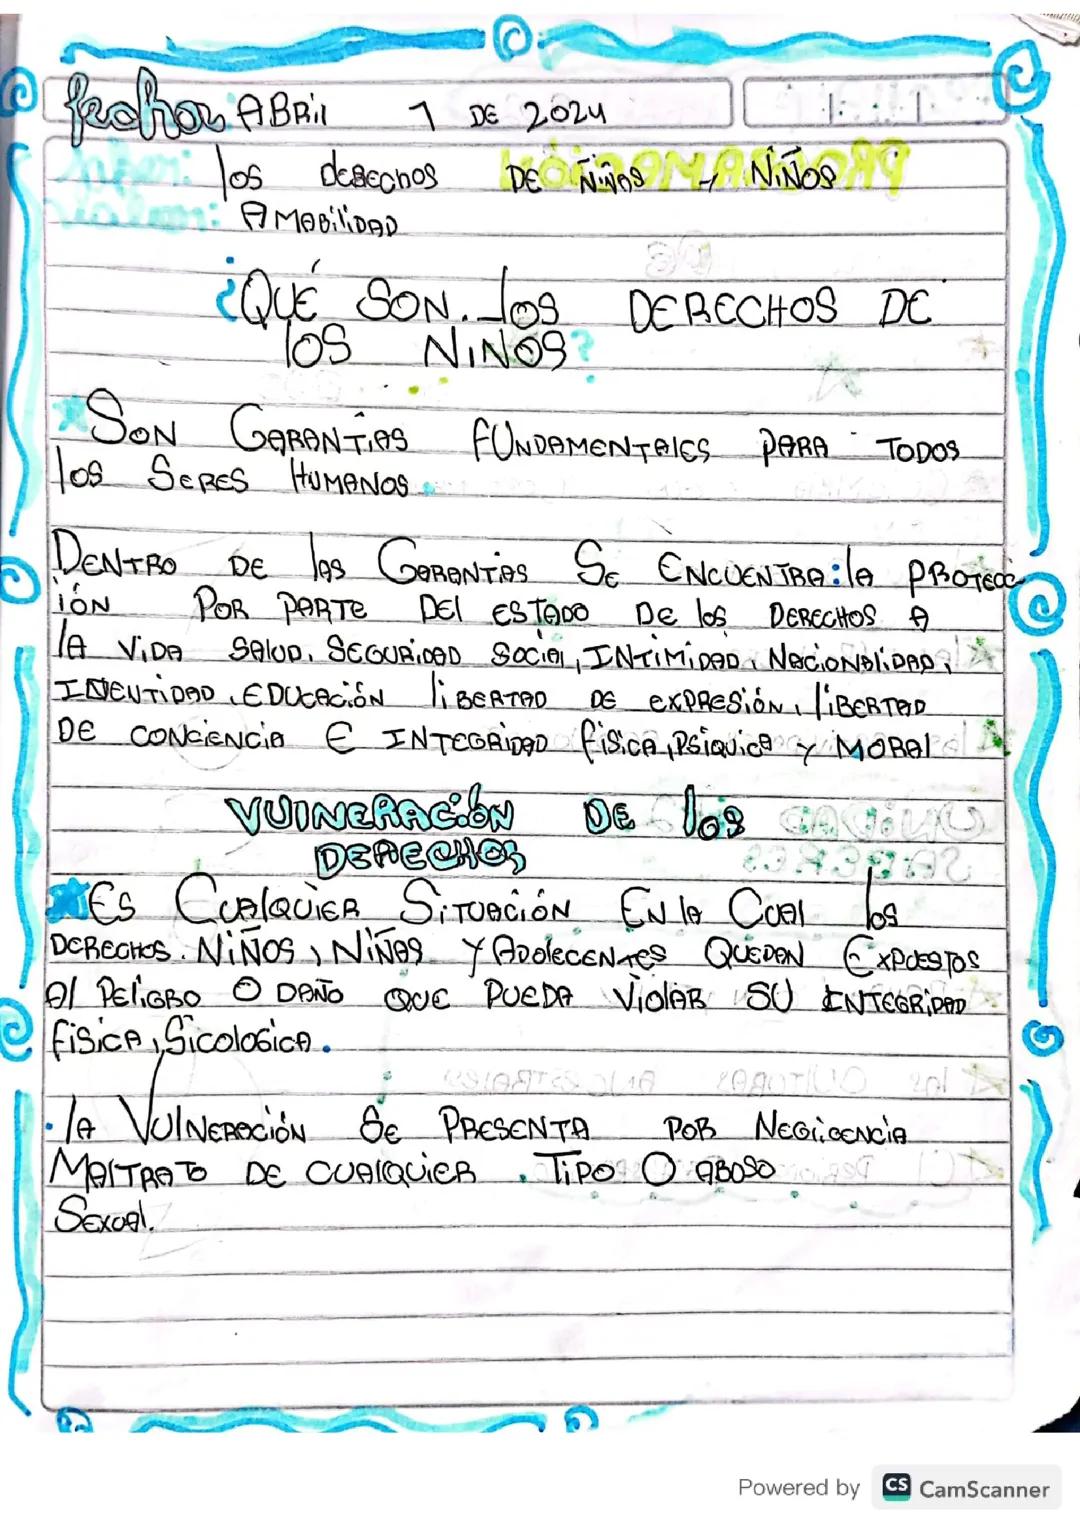 fecha: ABRil 1 DE 2024
los derechos DE NiÑas y NiÑOS
AMABiliDAD
¿QUÉ SON. los DERECHOS DE
los NIÑOS?
SON GARANTIAS FUNDAMENTALES PARA TODOS
los SERES HUMANOS.
DENTRO DE las GARANTIAS SE ENCUENTRA: la PROTECC
iÓN POR PARTE DEl ESTADO DE los DERECHOS A
lA ViDA SALUD, SEGURiDAD SOCiAl, INTIMiDAD, NACiONAliDAD,
IDENTiDAD, EDUCACiÓN liBERTAD DE EXPRESiÓN, liBERTAD
DE CONCiENCiA E INTEGRiDAD fiSiCA, PSiQUiCA Y MORAl
VUlNERACiÓN DE los
DERECHOS
ES CUAlQUiER SiTUACiÓN EN lA CUAl los
DERECHOS. NiÑOS, NiÑAS Y ADOlECENTES QUEDAN EXPUESTOS
Al PEliGRO O DAÑO QUE PUEDA ViOlAR SU INTEGRiDAD
FiSiCA, SicologiCA.
lA VUlNERACiÓN SE PRESENTA POR NEGliGENCiA
MAlTRATO DE CUAlQUiER. TiPO O ABUSO
SEXUAl.
Powered by CS CamScanner